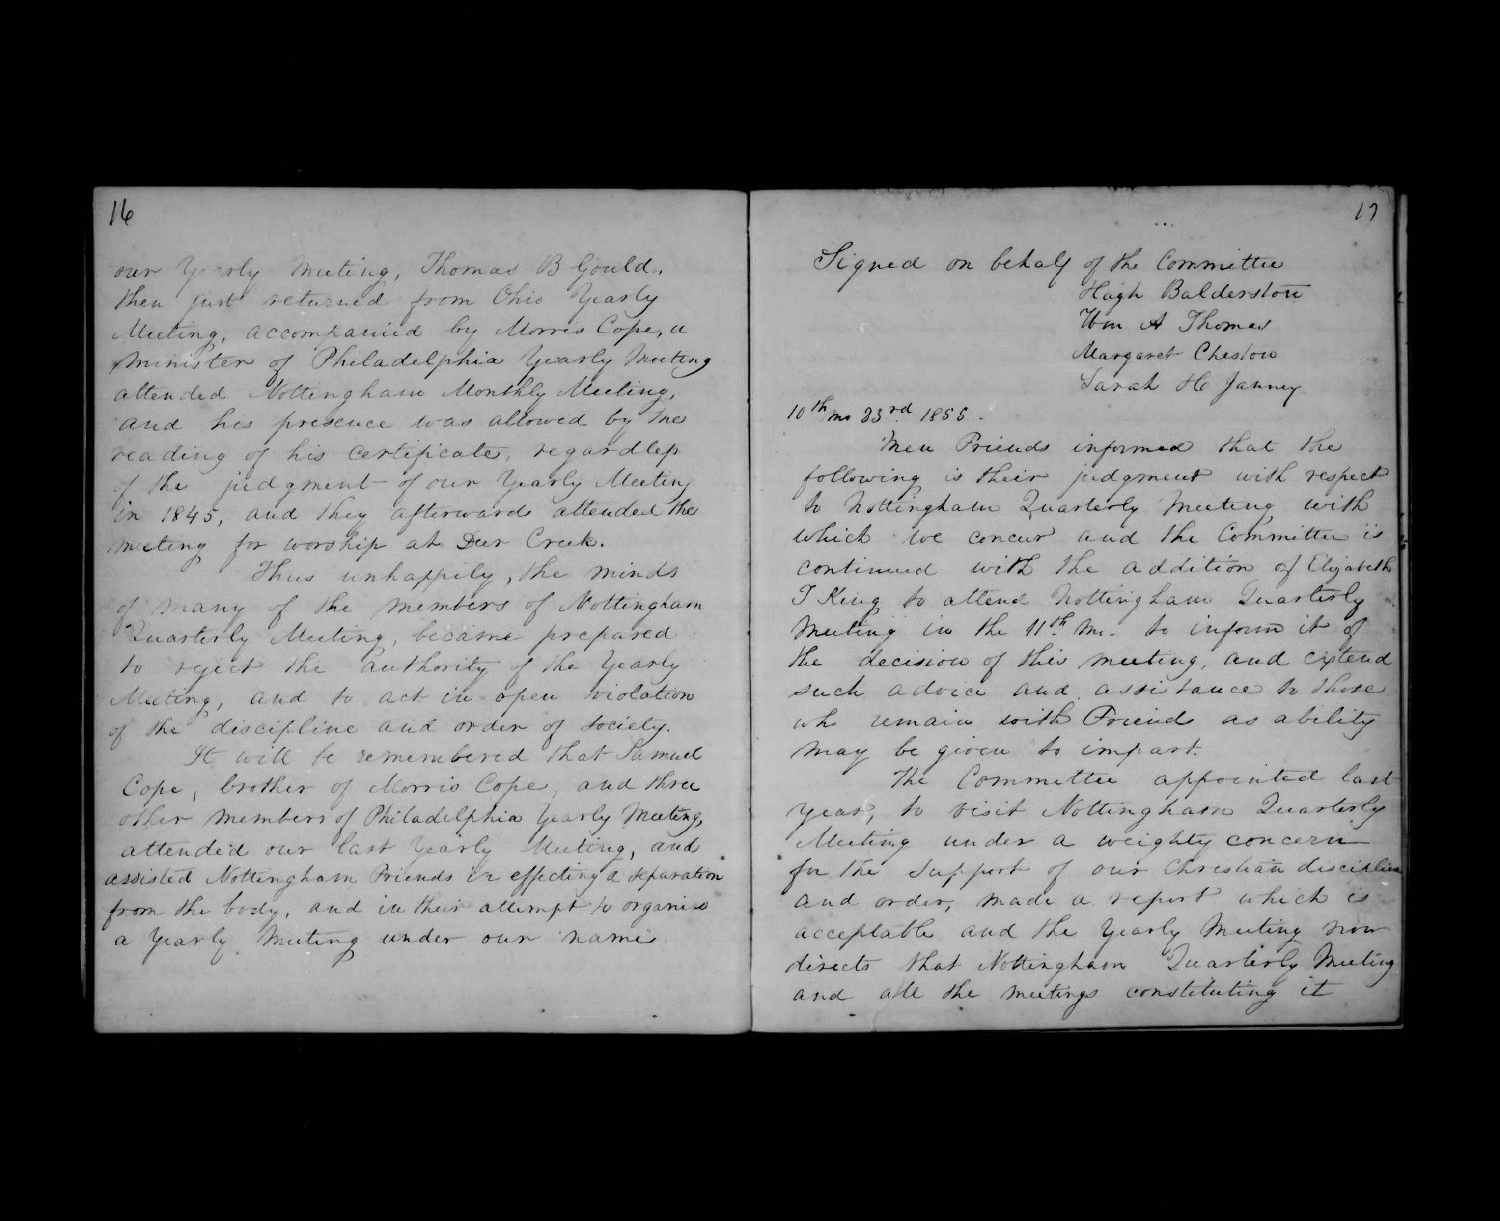 16
our Yearly Meeting, Thomas B Gould,
then just returned from Ohio Yearly
Meeting, accompanied by Morris Cope, a
minister of Philadelphia Yearly Meeting
attended Nottingham Monthly Meeting,
and his presence was allowed by the
reading of his certificate, regardless
of the judgment of our Yearly Meeting
in 1845, and they afterwards attended the
meeting for worship at Deer Creek.
Thus unhappily, the minds
of many of the members of Nottingham
Quarterly Meeting, became prepared
to reject the authority of the Yearly
Meeting, and to act in open violation
of the discipline and order of society.
It will be remembered that Samuel
Cope, brother of Morris Cope, and three
other members of Philadelphia Yearly Meeting,
attended our last Yearly Meeting, and
assisted Nottingham Friends in effecting a separation
from the body, and in their attempt to organise
a Yearly Meeting under our name.
17
Signed on behalf of the Committee
Hugh Balderston
Wm A Thomas
Margaret Cheston
Sarah H Janney
10th mo 23rd 1855.
Men Friends informed that the
following is their judgment with respect
to Nottingham Quarterly Meeting with
which we concur and the Committee is
continued with the addition of Elizabeth
T King to attend Nottingham Quarterly
Meeting in the 11th Mo. to inform it of
the decision of this meeting, and extend
such advice and assistance to those
who remain with Friends as ability
may be given to impart.
The Committee appointed last
year, to visit Nottingham Quarterly
Meeting under a weighty concern
for the support of our Christian discipline
and order, made a report which is
acceptable and the Yearly Meeting now
directs that Nottingham Quarterly Meeting
and all the meetings constituting it